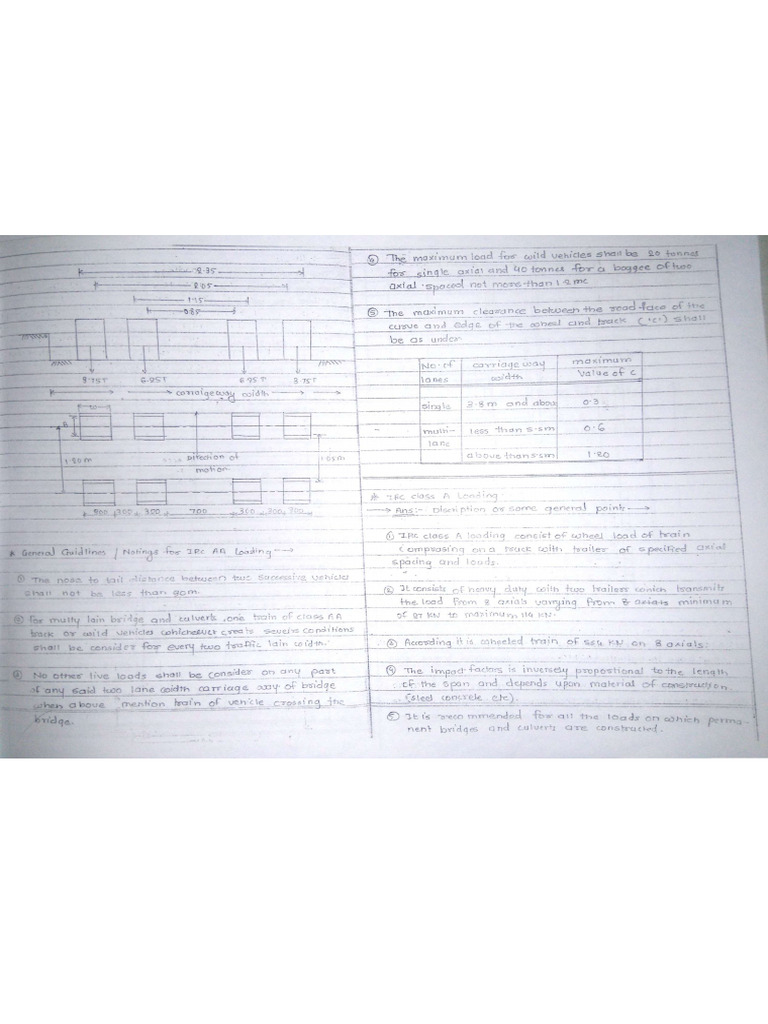 2.35
2.05
1.15
0.85
3.75T 6.25T 6.25T 3.75T
carraigeway width
B
1.20m
Direction of
motion
300 300 300 700 300 300 300
* General Guidlines / Notings for IRC AA Loading →
① The nose to tail distance between two successive vehicles
shall not be less than 90m.
② For multy lain bridge and culverts, one train of class AA
track or wild vehicles whichever creats severs conditions
shall be consider for every two traffic lain width.
③ No other live loads shall be consider on any part
of any said two lane width carriage way of bridge
when above mention train of vehicle crossing the
bridge.
④ The maximum load for wild vehicles shall be 20 tonnes
for single axial and 40 tonnes for a baggee of two
axial spaced not more than 1.2 mc
⑤ The maximum clearance between the road face of the
curve and edge of the wheel and track ('c') shall
be as under
No. of carriage way maximum
lanes width value of c
single 3.8m and abov 0.3
multi- less than 5.5m 0.6
lane
above than 5.5m 1.20
* IRC class A Loading
→ Ans:- Discription or some general points →
① IRC class A loading consist of wheel load of train
comprasing on a truck with trailer of specified axial
spacing and loads.
② It consists of heavy duty with two trailers which transmits
the load from 8 axials varying from 8 axials minimum
of 27 KN to maximum 114 KN.
③ According it is wheeled train of 554 KN on 8 axials.
④ The impact factors is inversely propotional to the length
of the span and depends upon material of construction
(steel concrete etc).
⑤ It is recommended for all the loads on which perma-
nent bridges and culverts are constructed.